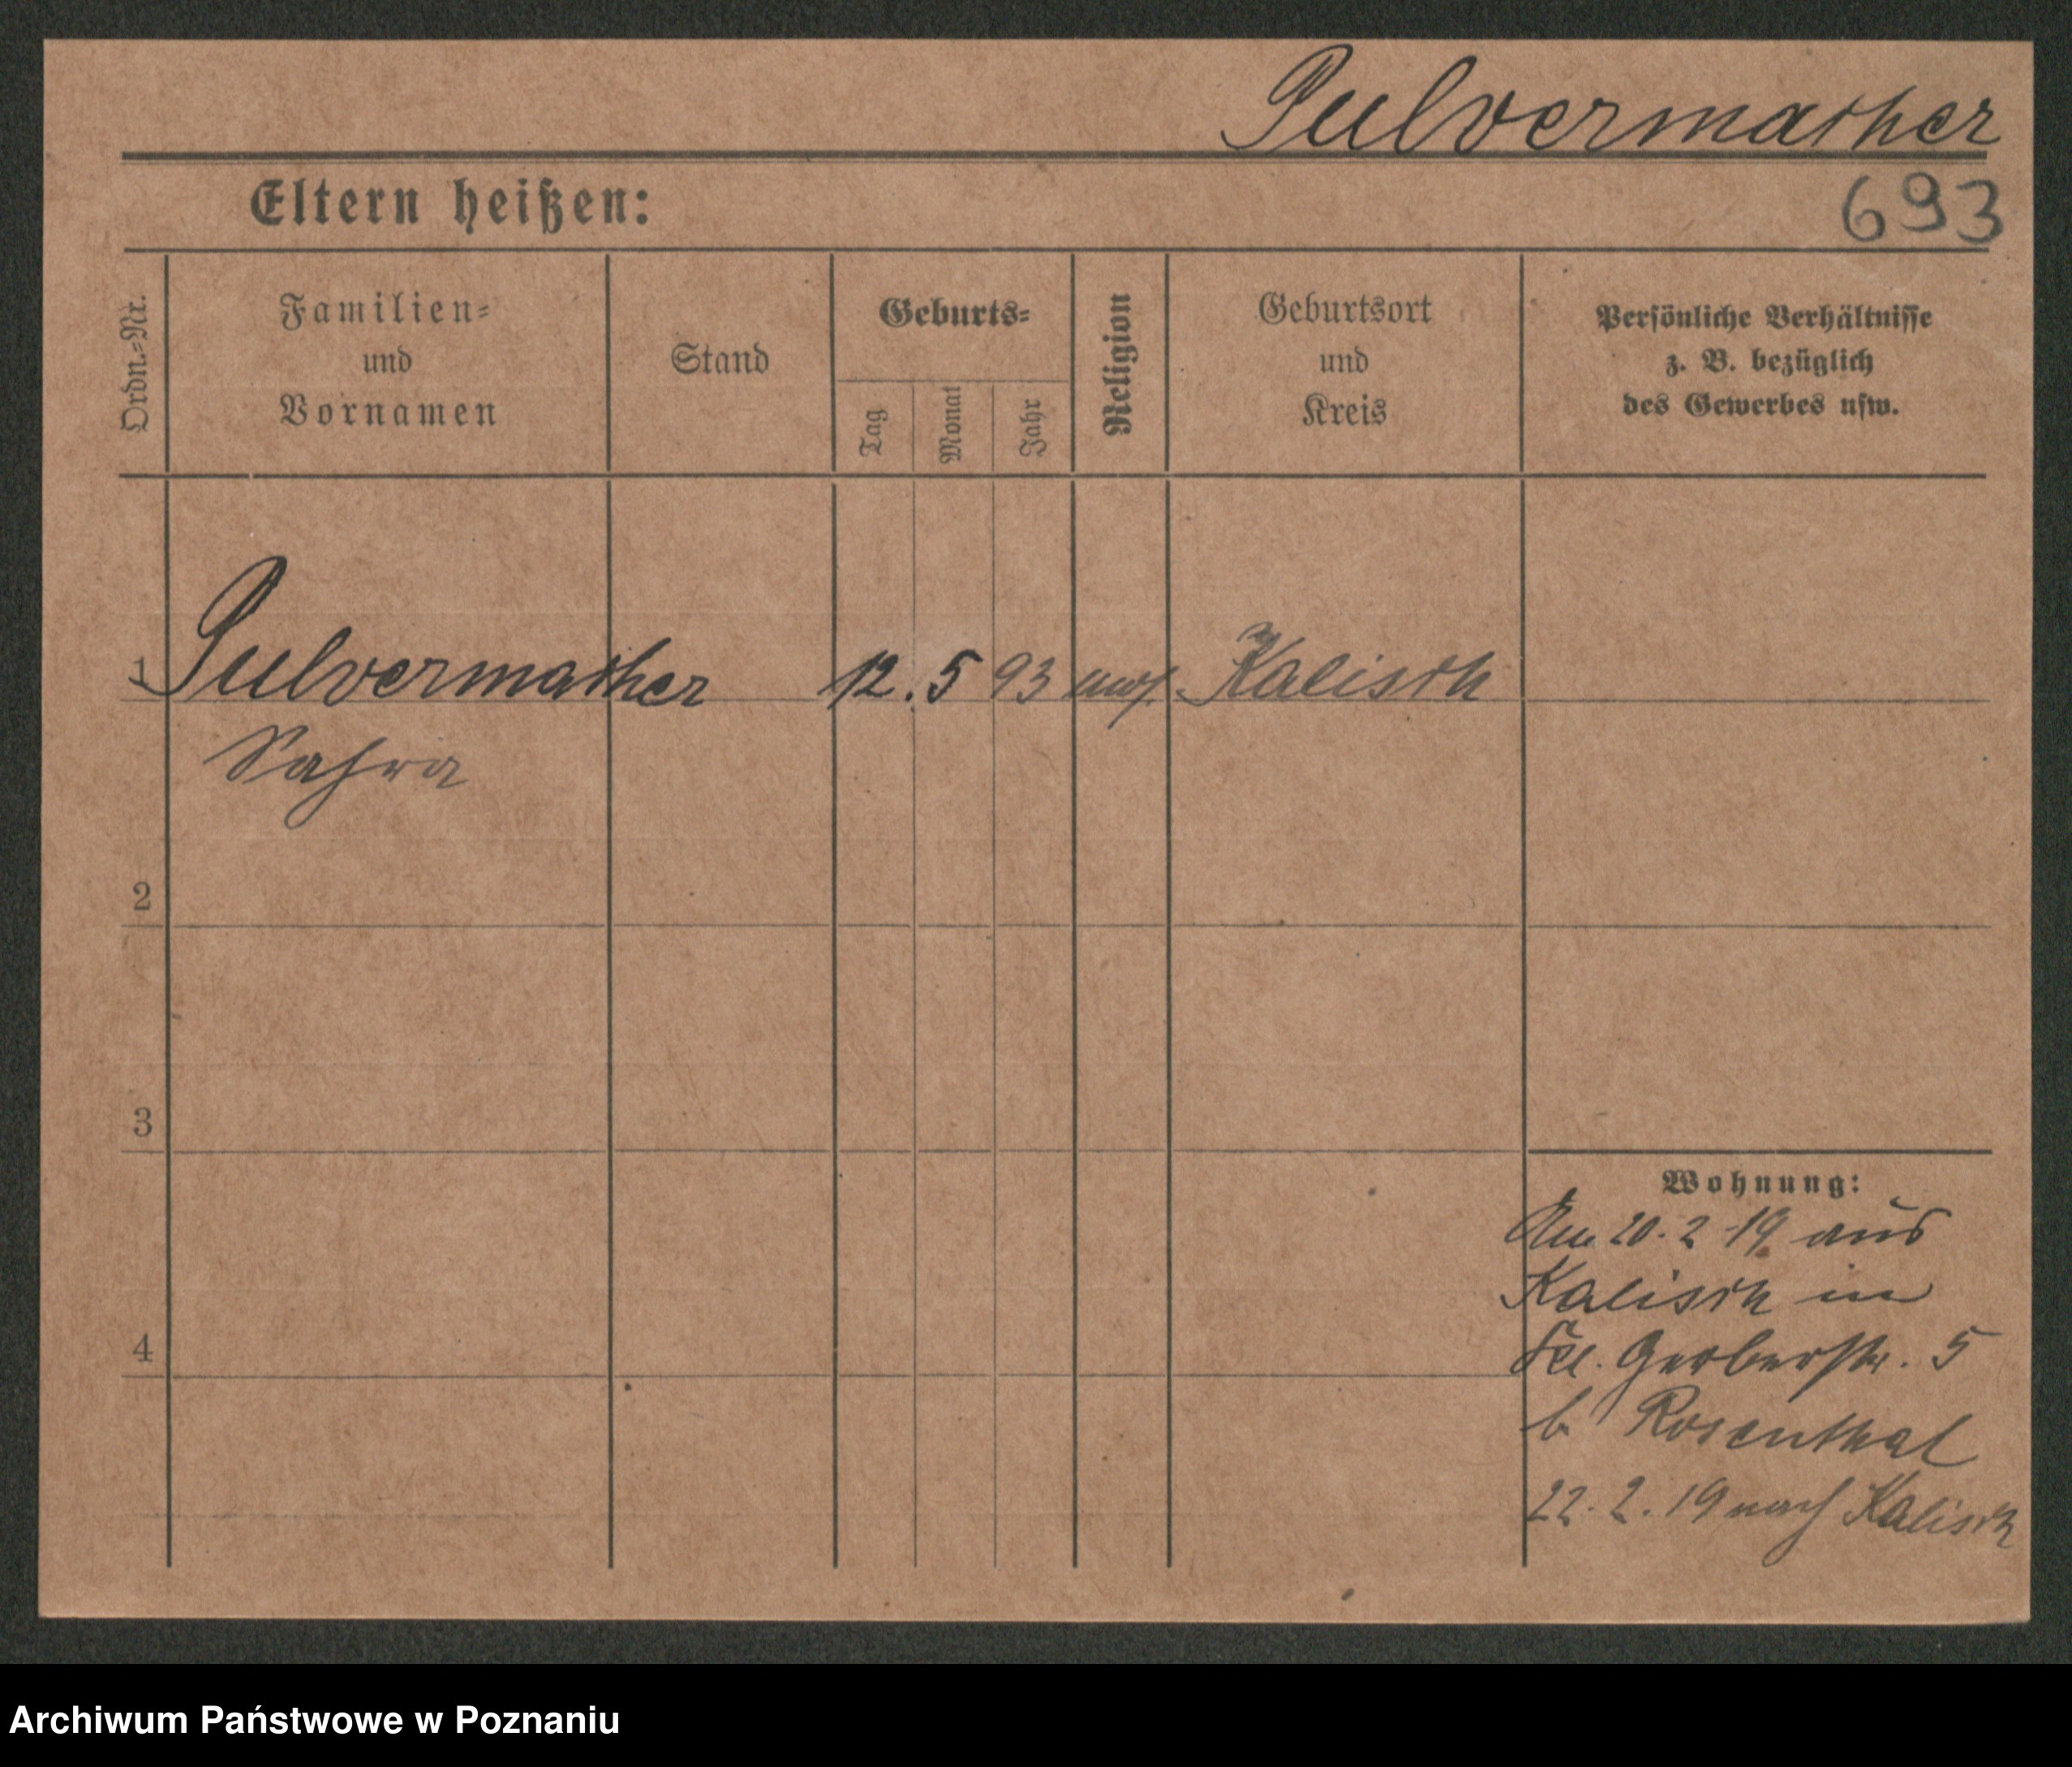 Pulvermacher
Eltern heißen:
693
Ordn.-Nr.
Familien-
und
Vornamen
Stand
Geburts-
Tag
Monat
Jahr
Religion
Geburtsort
und
Kreis
Persönliche Verhältnisse
z. B. bezüglich
des Gewerbes usw.
1 Pulvermacher 12. 5 93 Kalisch
Sahra
2
3
4
Wohnung:
20. 2 19 aus
Kalisch in
Gerberstr. 5
b Rosenthal
22. 2. 19 nach Kalisch
Archiwum Państwowe w Poznaniu